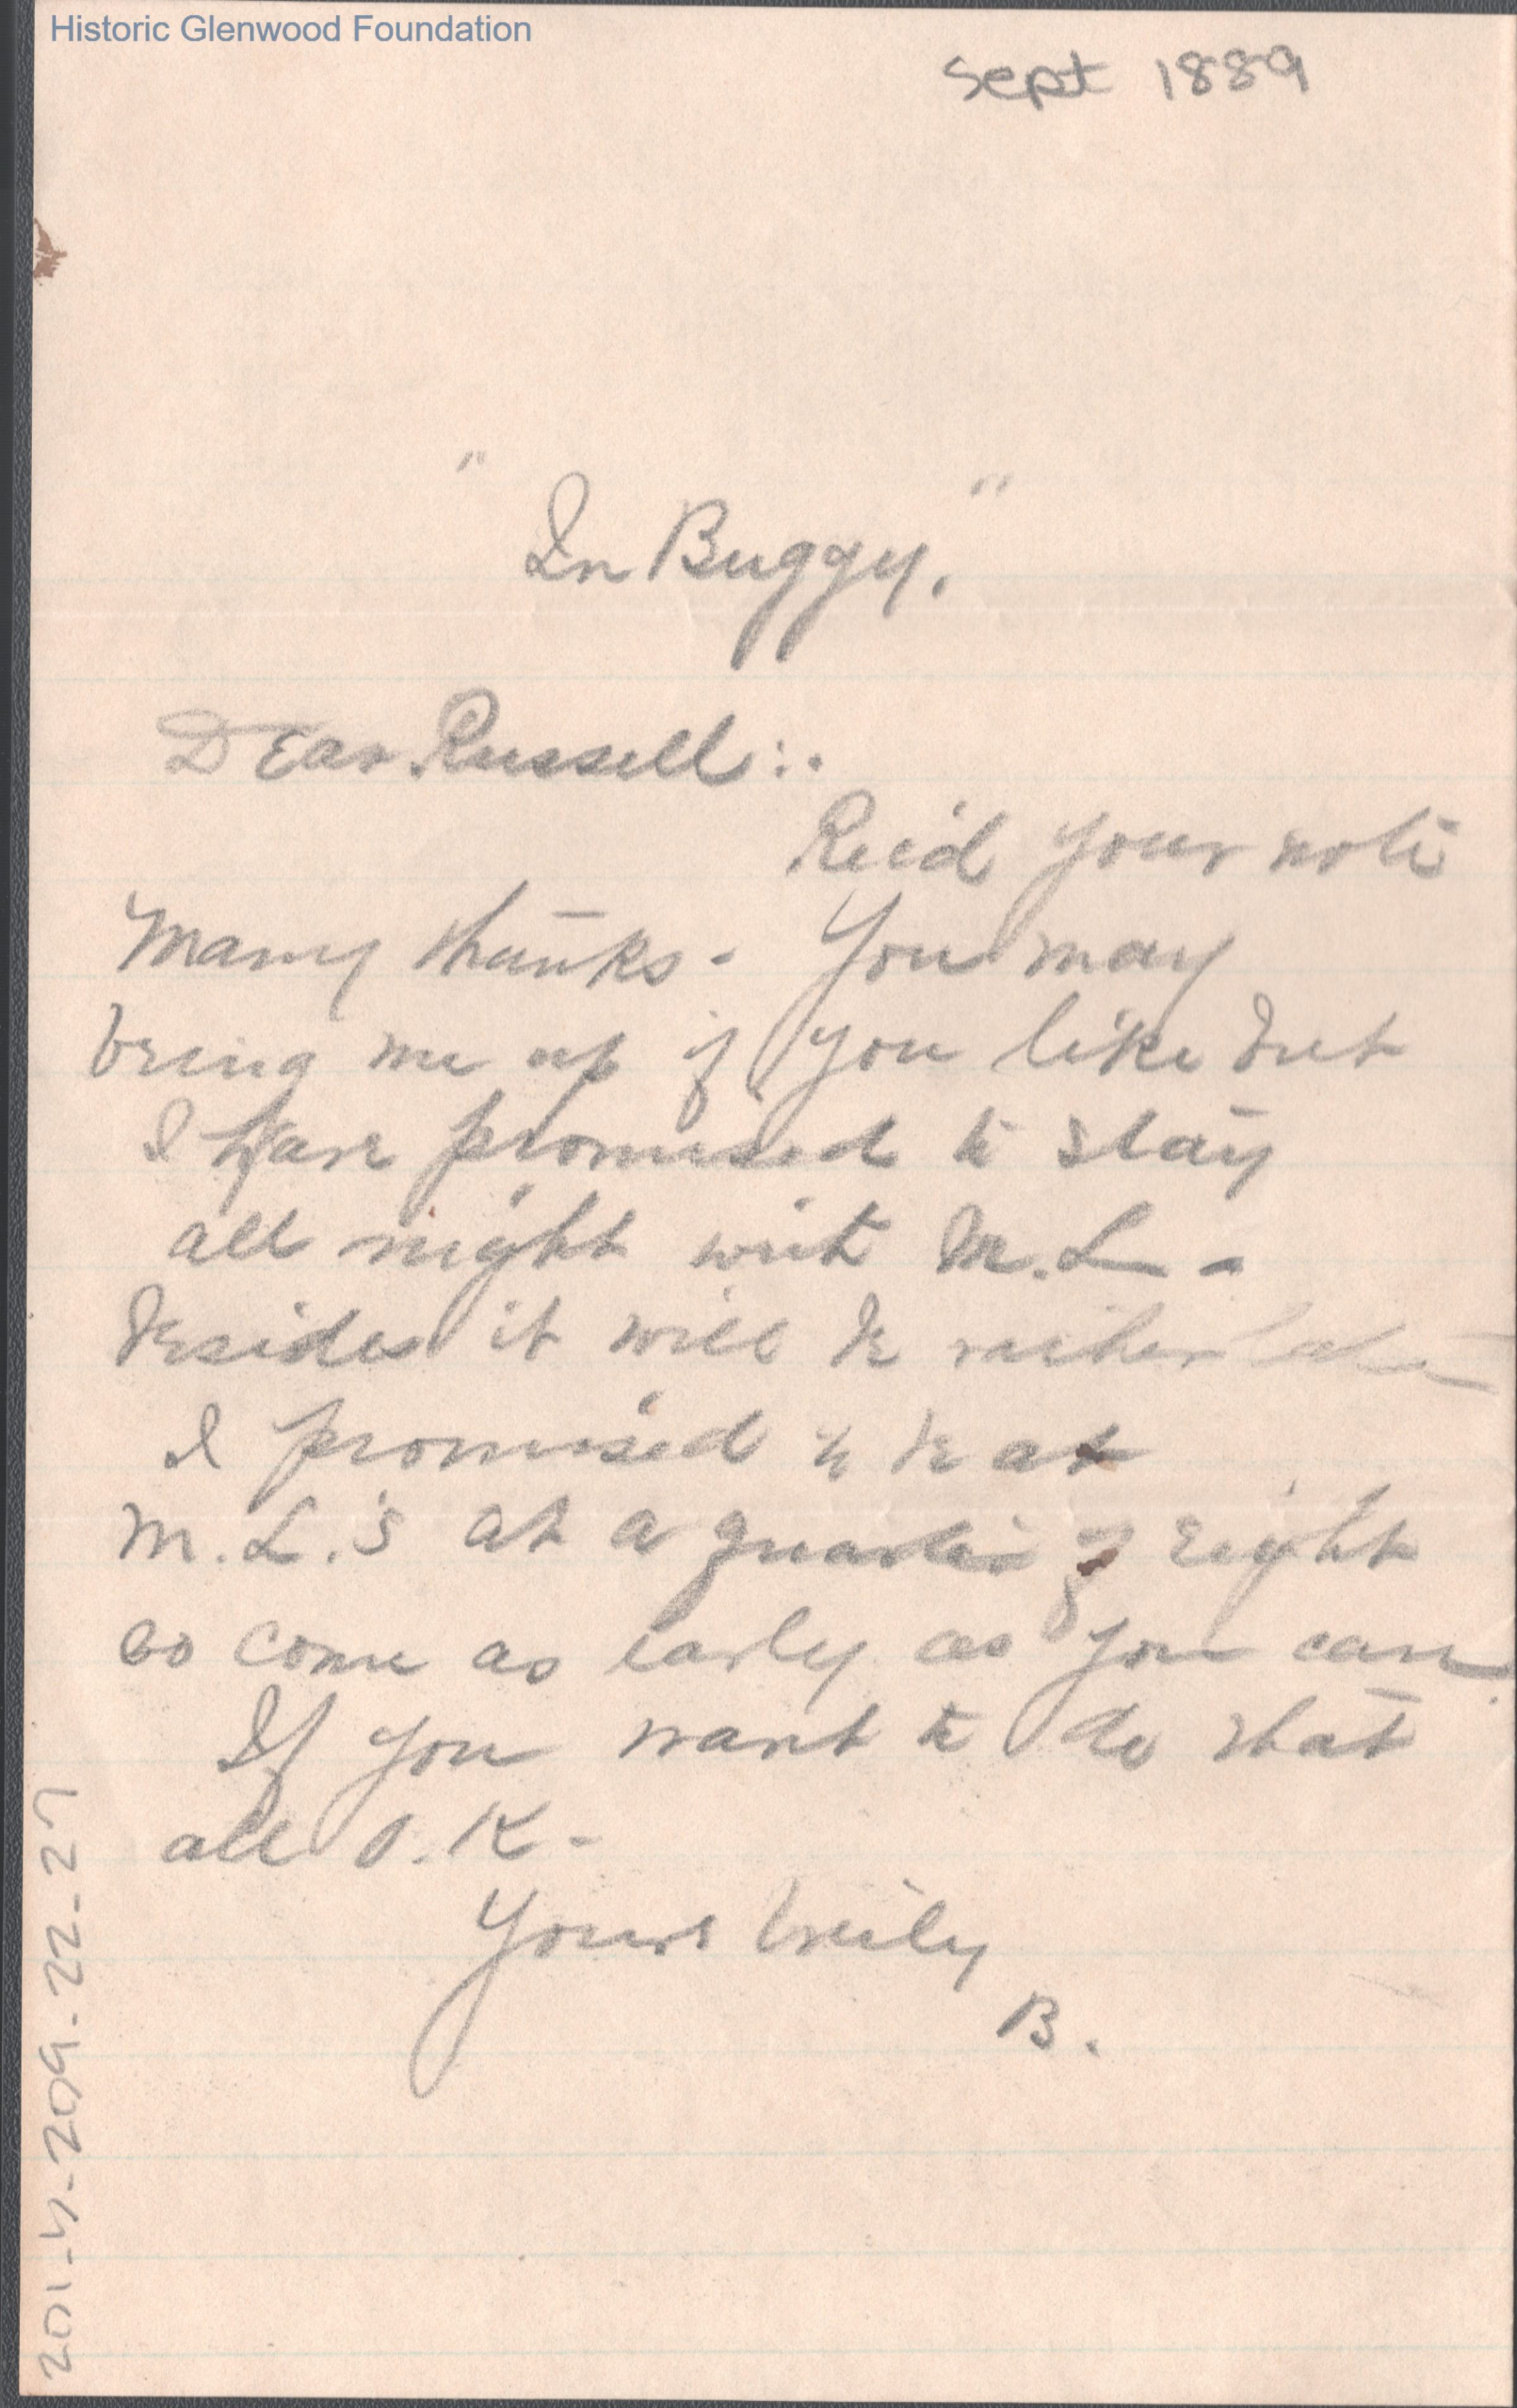 Historic Glenwood Foundation
Sept 1889
"In Buggy."
Dear Russell:.
Rec'd your note
Many thanks - You may
bring me up if you like but
I have promised to stay
all night with M. L -
besides it will be rather late
I promised to be at
M. L.'s at a quarter of eight
so come as early as you can.
If you want to do that
all O. K -
Yours truly
B.
201-4-209-22-27